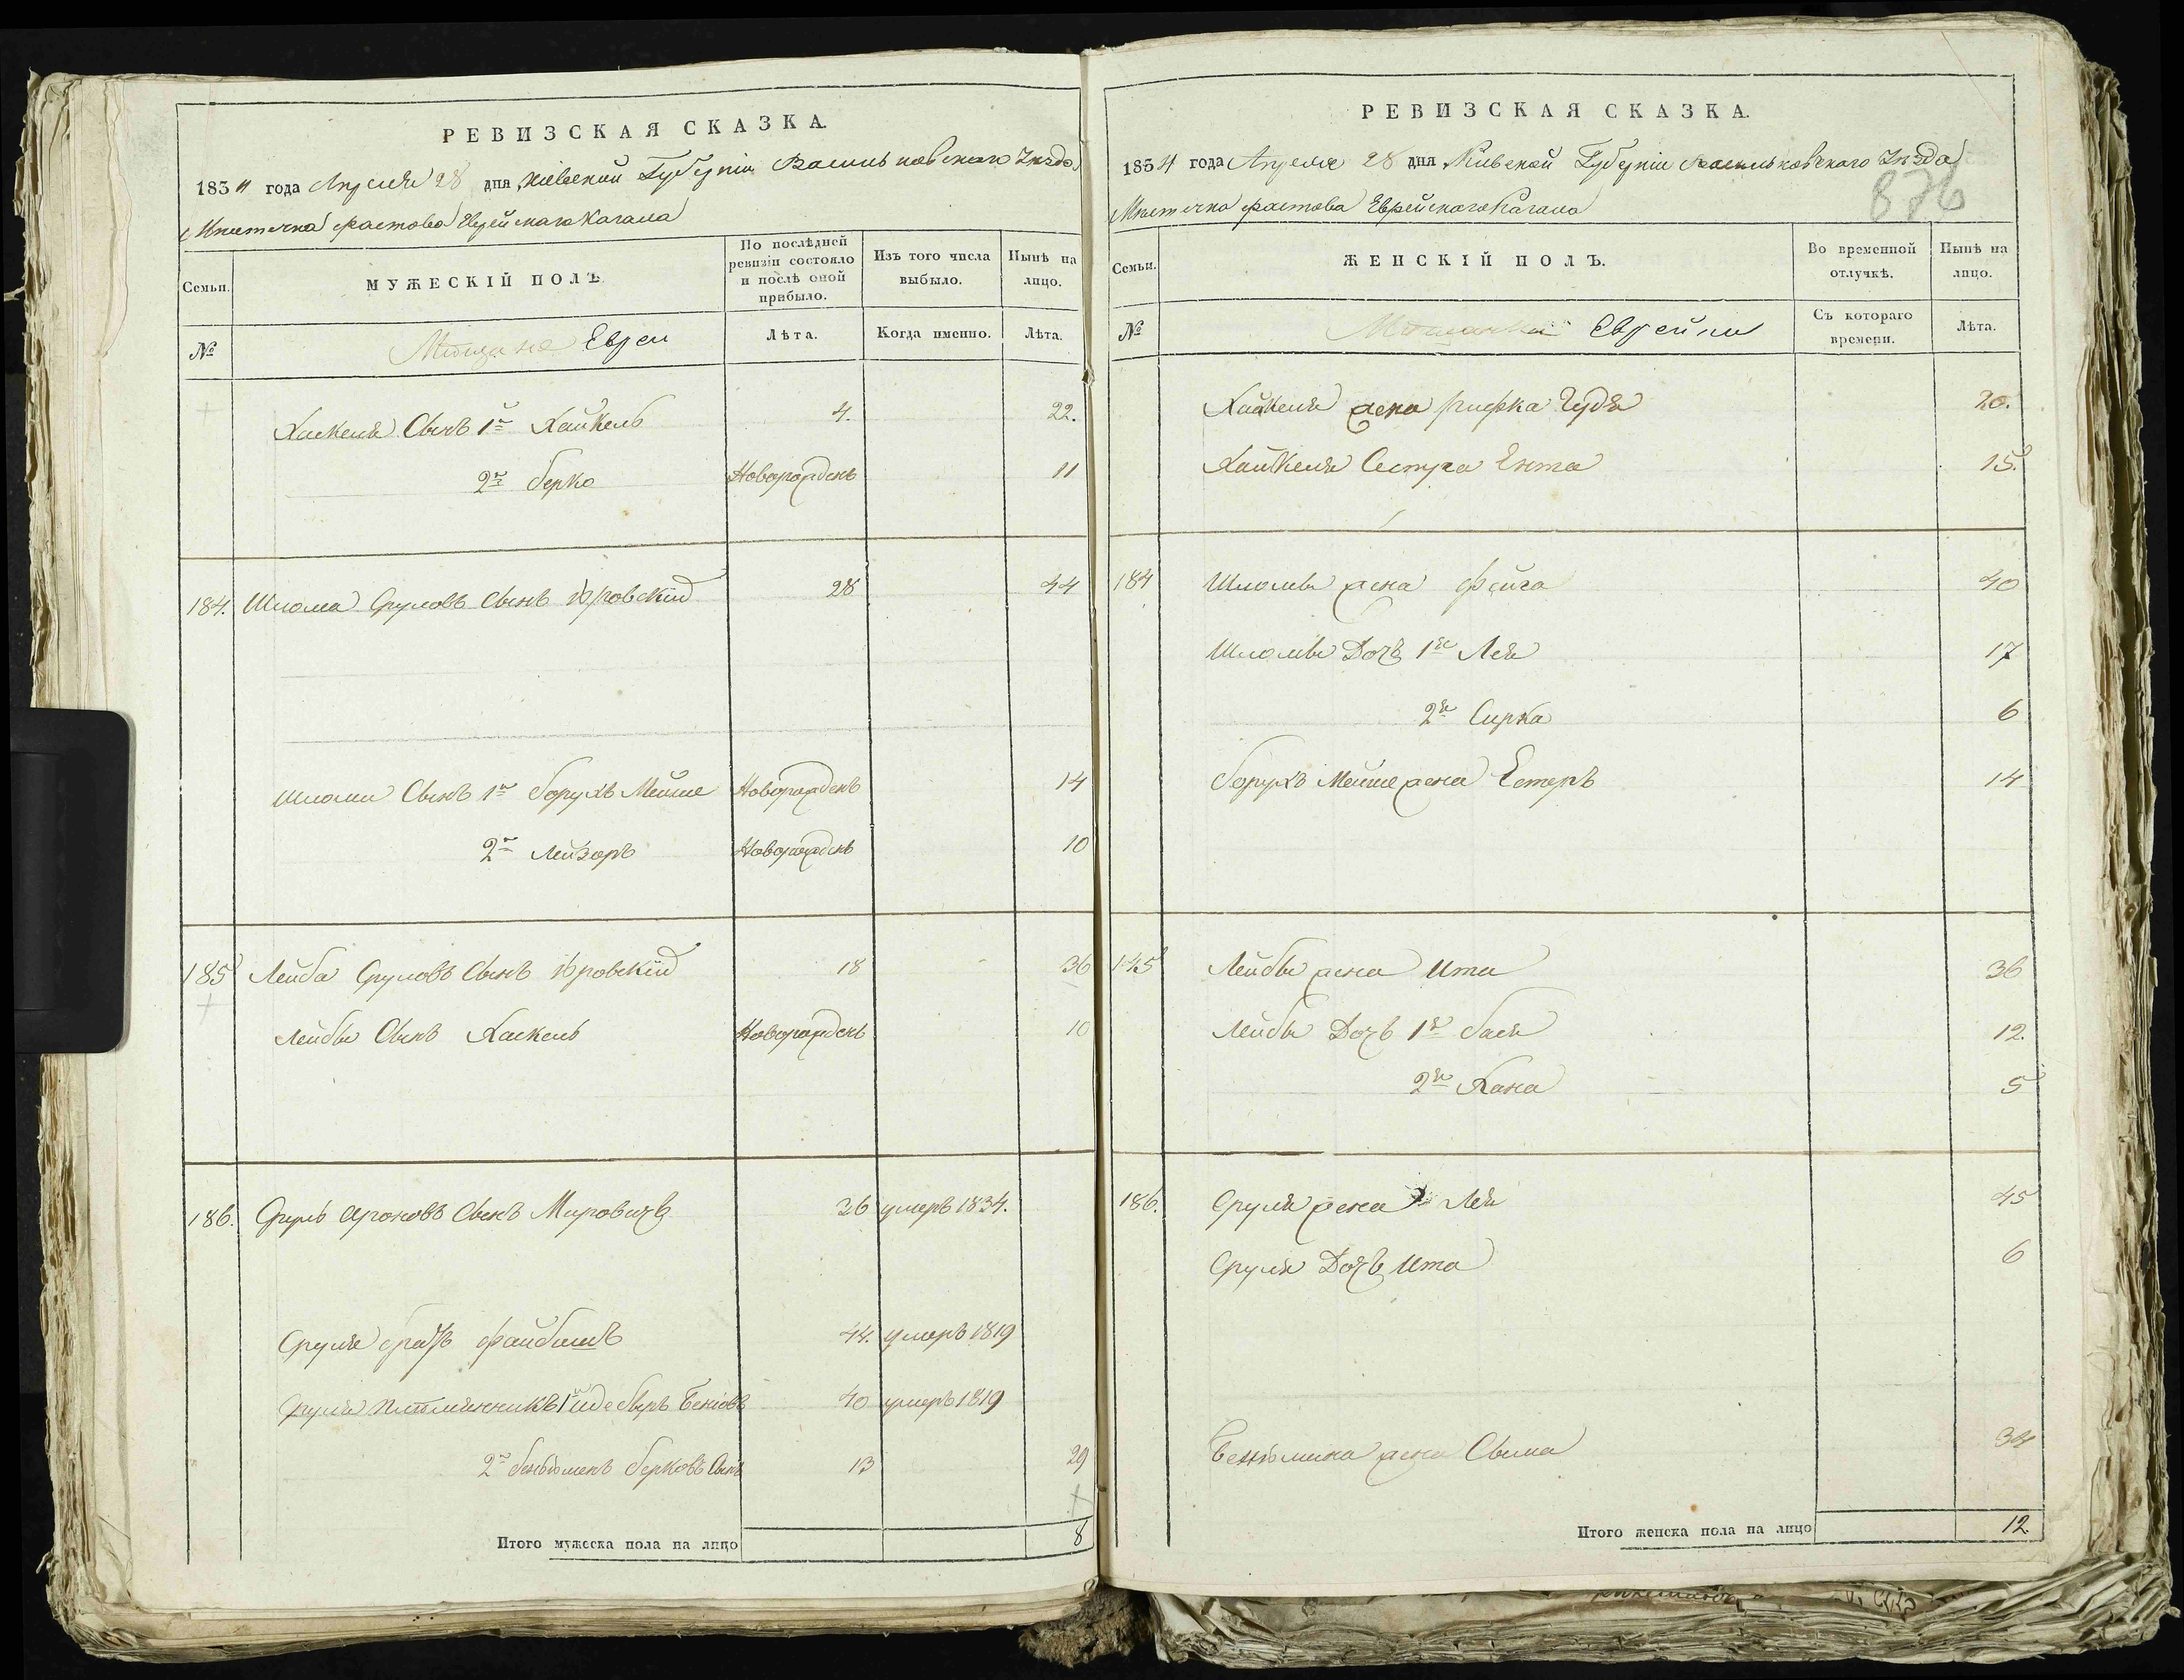 РЕВИЗСКАЯ СКАЗКА.
1834 года Апреля 28 дня Кіевской Губерніи Васильковскаго Уезда
Местечка Фастова Еврейскаго Кагала
Семьи.
МУЖЕСКІЙ ПОЛЪ.
По послѣдней ревизіи состояло и послѣ оной прибыло.
Изъ того числа выбыло.
Нынѣ на лицо.
№
Мещане Евреи
Лѣта.
Когда именно.
Лѣта.
Хаскеля Сынъ 1й Хайкель 4. 22.
2й Берко Новорожденъ 11
184. Шлома Сруловъ Сынъ 28 44
Шломи Сынъ 1й Борухъ Мейше Новорожденъ 14
2й Лейзоръ Новорожденъ 10
185 Лейба Сруловъ Сынъ 18 36
Лейбы Сынъ Хаскель Новорожденъ 10
186. Сруль Ароновъ Сынъ Мировичъ 26 умеръ 1834.
Сруля братъ Файбишъ 44. умеръ 1819
Сруля племянникъ 1й 40 умеръ 1819
2й Беньюменъ Берковъ Сынъ 13 29
Итого мужеска пола на лицо 8
РЕВИЗСКАЯ СКАЗКА.
1834 года Апреля 28 дня Кіевской Губерніи Васильковскаго Уезда
Местечка Фастова Еврейскаго Кагала
876
Семьи.
ЖЕНСКІЙ ПОЛЪ.
Во временной отлучкѣ.
Нынѣ на лицо.
№
Мещанки Еврейки
Съ котораго времени.
Лѣта.
Хайкеля жена Рифка Гудя 20.
Хайкеля Сестра Ента 15.
184 Шломы жена Фейга 40
Шломы Дочь 1я Лея 17
2я Сирка 6
Борухъ Мейше жена Естеръ 14
185 Лейбы жена Ита 36
Лейбы Дочь 1я Бася 12.
2я Хана 5
186. Сруля жена Лея 45
Сруля Дочь Ита 6
Беньюмина жена Сима 34
Итого женска пола на лицо 12.